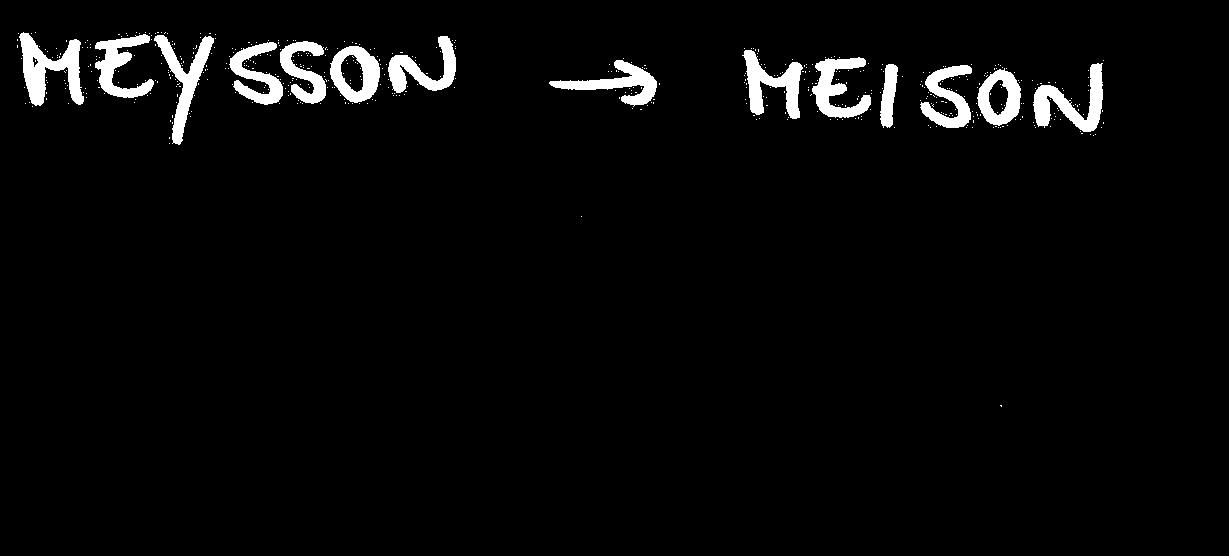 MEYSSON → MEISON